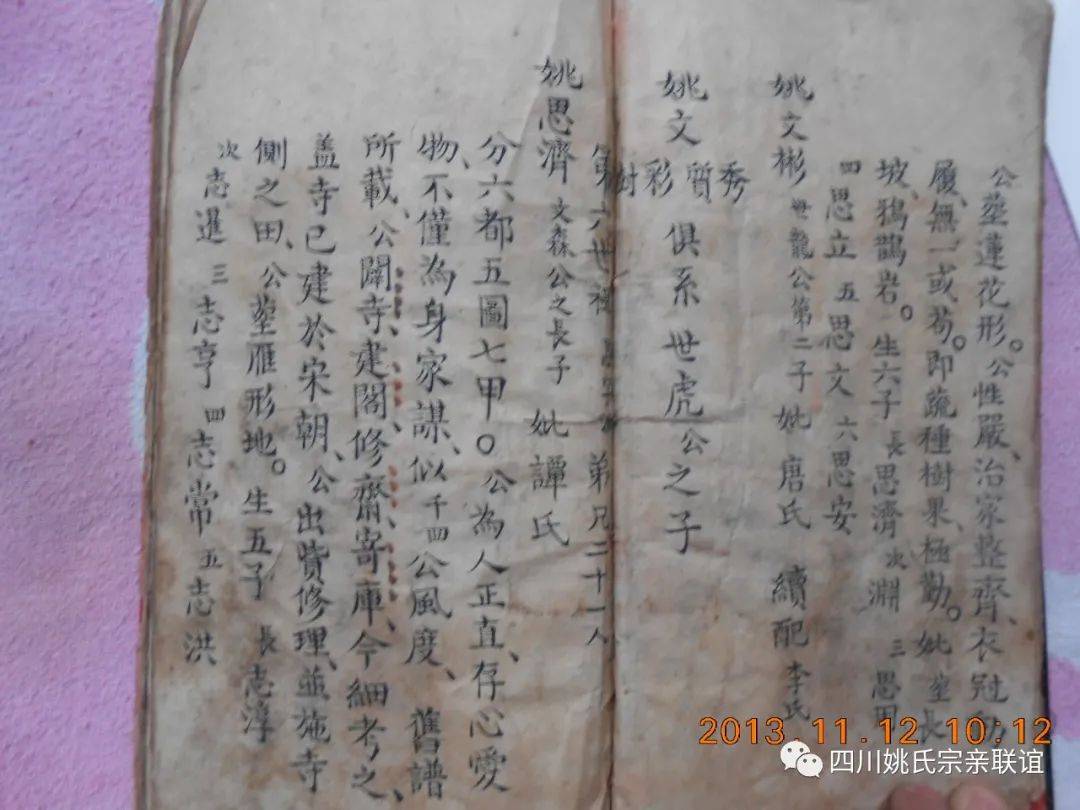 公塟蓮花形。公性嚴、治家整齊、衣冠
履、無一或苟。即蔬種樹果、極勤。妣塟長
坡、鴉鵲岩。生六子 長思濟 次淵 三思
四思立 五思文 六思安
姚文彬 世龍公第二子 妣唐氏 續配李氏
姚文 秀質彩樹 俱系世虎公之子
第六世 弟兄二十一人
姚思濟 文森公之長子 妣譚氏
分六都五圖七甲。公為人正直、存心愛
物、不僅為身家謀、似千四公風度、舊譜
所載、公闢寺、建閣、修齋、寄庫、今細考之、
盖寺已建於宋朝、公出貲修理、並施寺
側之田、公塟雁形地。生五子 長志淳
次志暹 三志亨 四志常 五志洪
2013.11.12 10:12
四川姚氏宗亲联谊